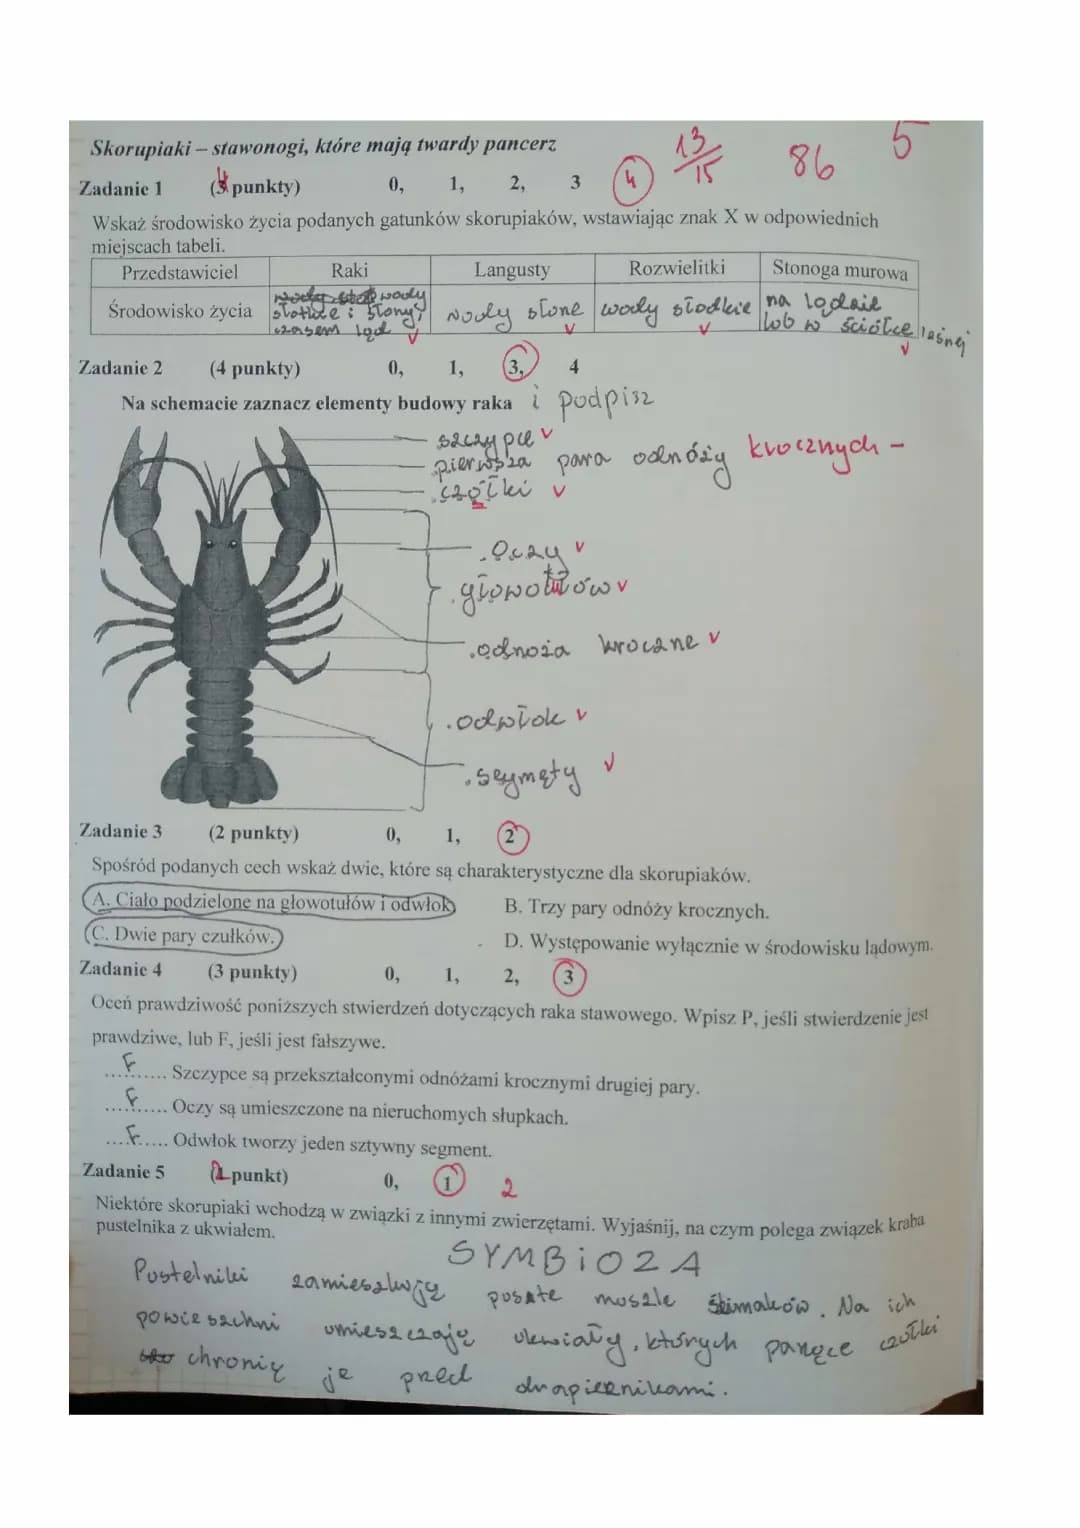 13/15 86 5
Skorupiaki – stawonogi, które mają twardy pancerz
Zadanie 1 (4 punkty) 0, 1, 2, 3 4
Wskaż środowisko życia podanych gatunków skorupiaków, wstawiając znak X w odpowiednich
miejscach tabeli.
Przedstawiciel Raki Langusty Rozwielitki Stonoga murowa
Środowisko życia wody słodkie i słony, czasem ląd wody słone wody słodkie na lądzie lub w ściółce leśnej
Zadanie 2 (4 punkty) 0, 1, 3, 4
Na schemacie zaznacz elementy budowy raka i podpisz
szczypce
pierwsza para odnóży krocznych -
czołki
oczy
głowotułów
odnoża kroczne
odwłok
segmęty
Zadanie 3 (2 punkty) 0, 1, 2
Spośród podanych cech wskaż dwie, które są charakterystyczne dla skorupiaków.
A. Ciało podzielone na głowotułów i odwłok B. Trzy pary odnóży krocznych.
C. Dwie pary czułków. D. Występowanie wyłącznie w środowisku lądowym.
Zadanie 4 (3 punkty) 0, 1, 2, 3
Oceń prawdziwość poniższych stwierdzeń dotyczących raka stawowego. Wpisz P, jeśli stwierdzenie jest
prawdziwe, lub F, jeśli jest fałszywe.
F Szczypce są przekształconymi odnóżami krocznymi drugiej pary.
F Oczy są umieszczone na nieruchomych słupkach.
F Odwłok tworzy jeden sztywny segment.
Zadanie 5 (2 punkt) 0, 1 2
Niektóre skorupiaki wchodzą w związki z innymi zwierzętami. Wyjaśnij, na czym polega związek kraba
pustelnika z ukwiałem.
SYMBiOZA
Pustelniki zamieszkują puste muszle ślimaków. Na ich
powierzchni umieszczają ukwiały, których parzące czułki
chronią je przed drapieżnikami.